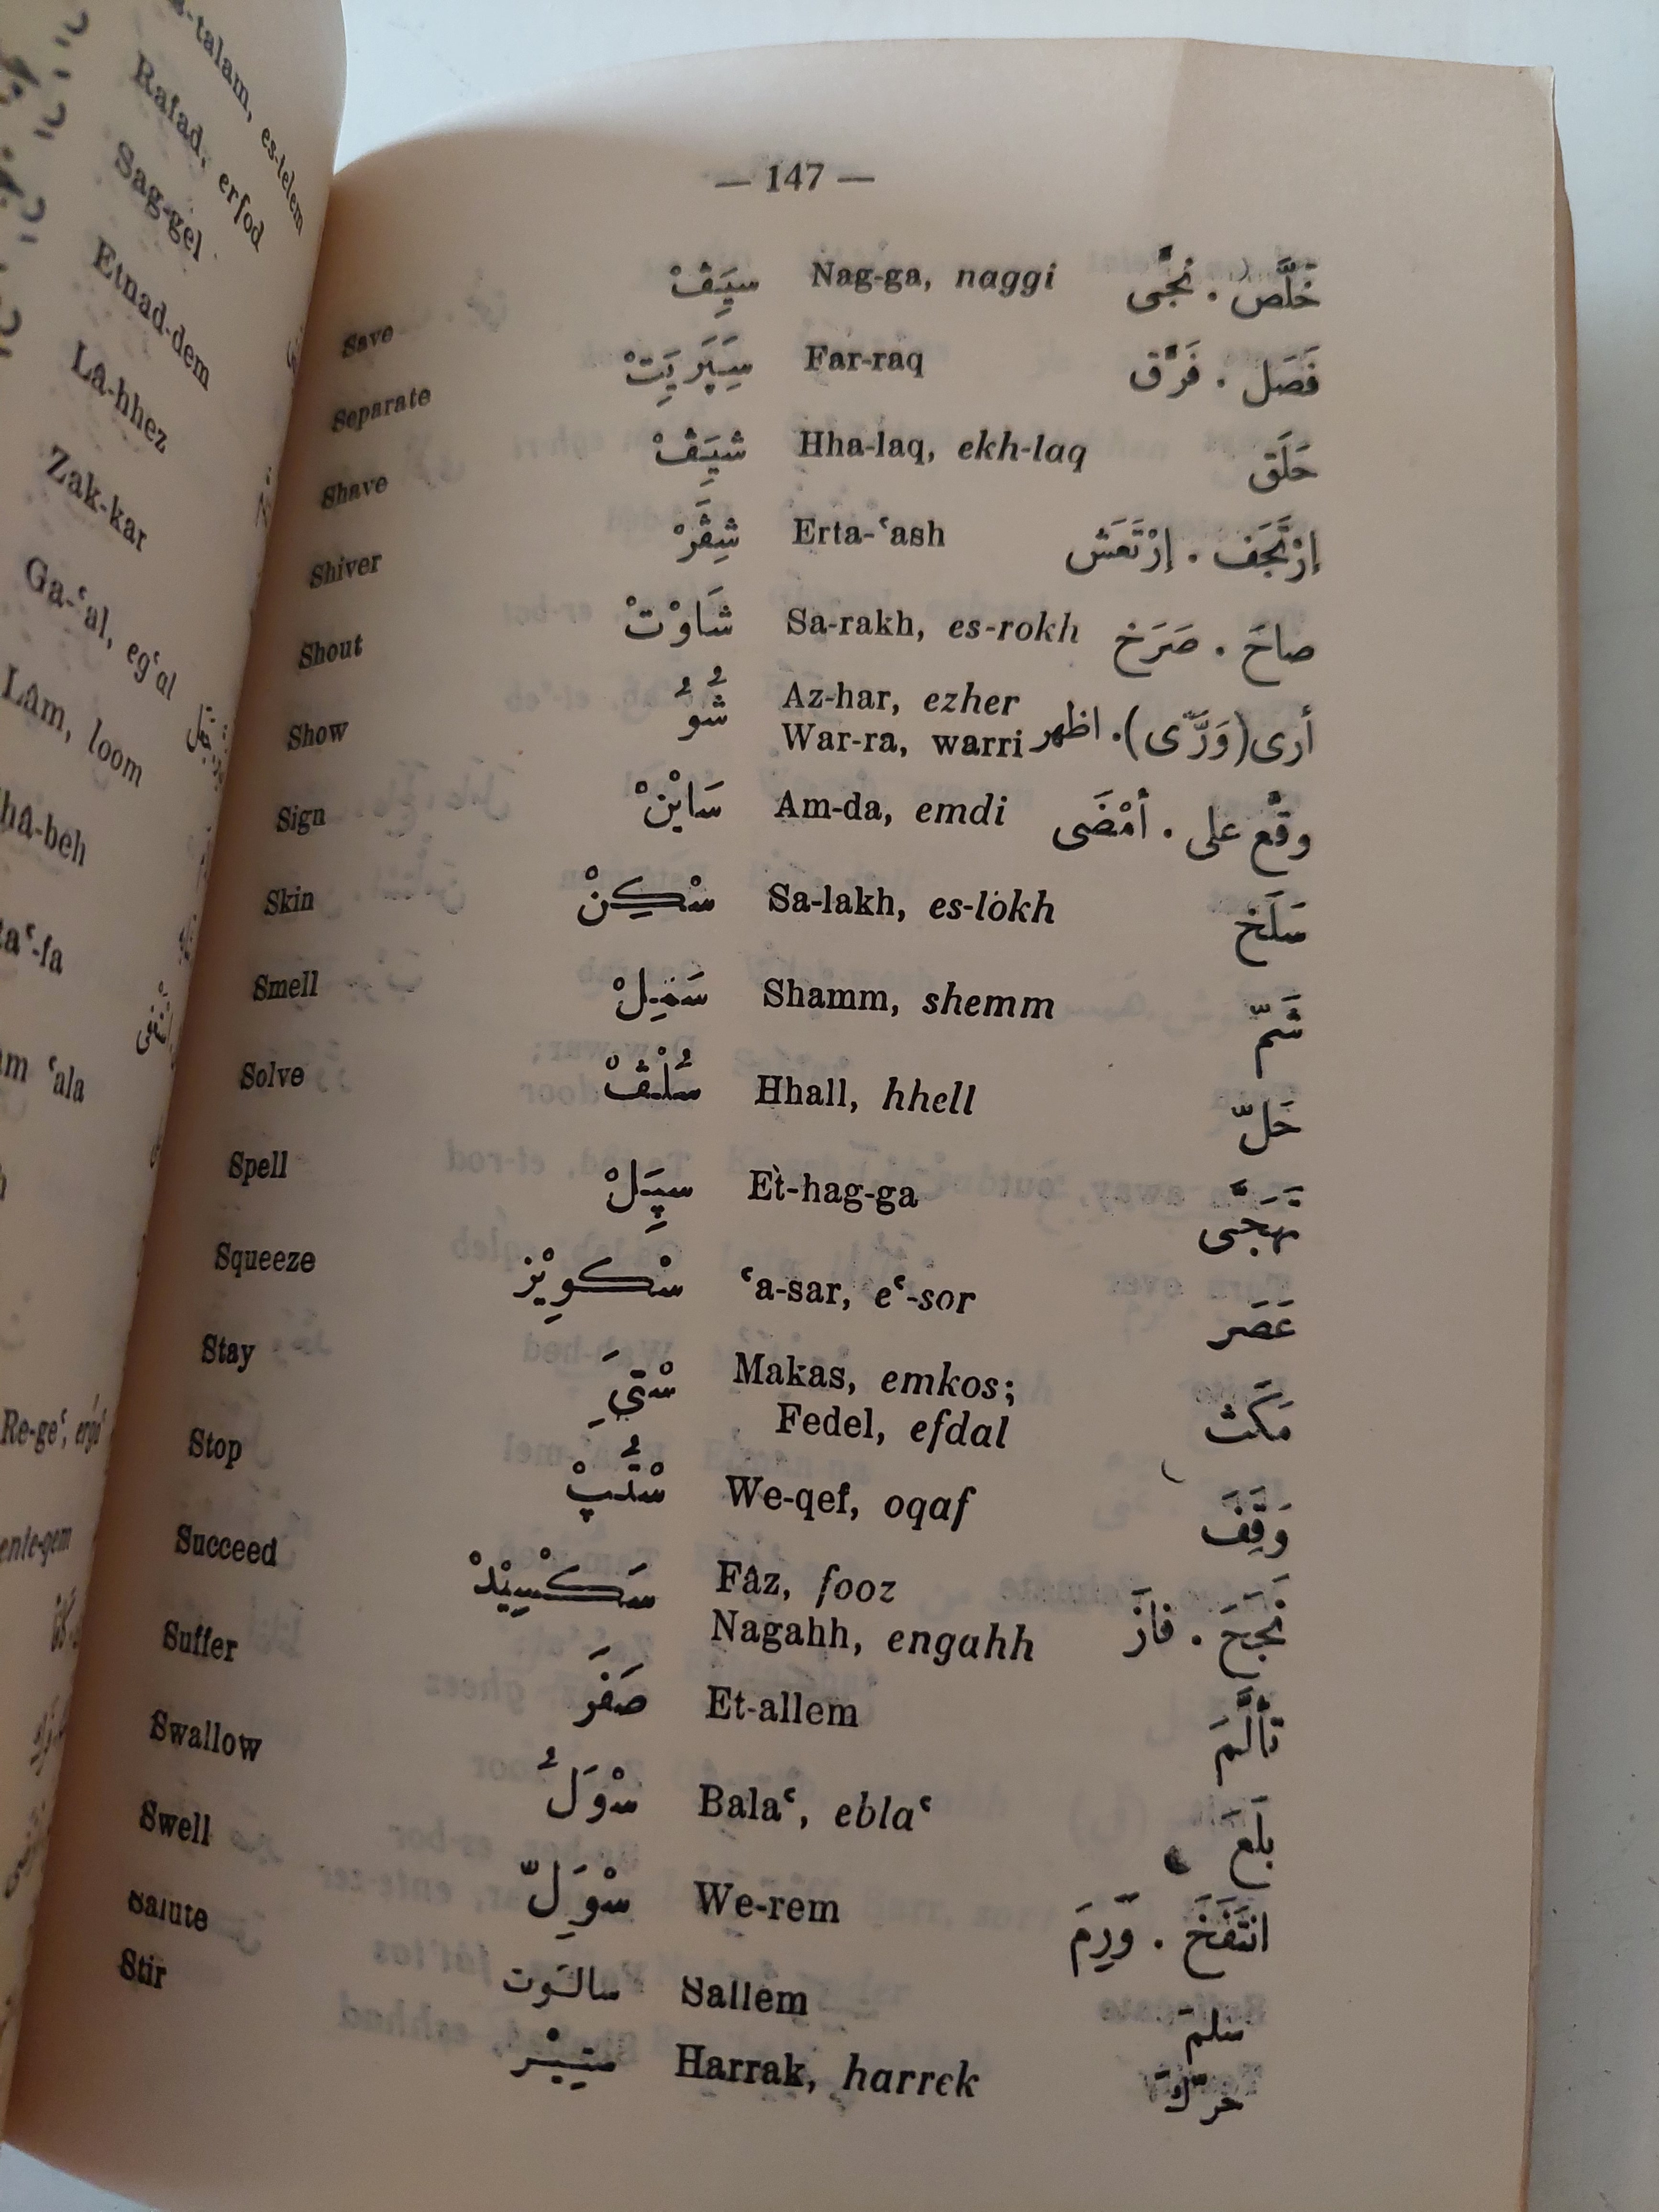 -talam, es-telem
Rafad, erfod
Sag-gel
Etnad-dem
La-hhez
Zak-kar
Ga-ʿal, egʿal
Lam, loom
ha-beh
taʿ-fa
m ʿala
Re-geʿ, ergaʿ
ente-gem
— 147 —
Save سيَِڤْ Nag-ga, naggi خَلَّص . نَجَّى
Separate سِيَپَرَيِتْ Far-raq فَصَل . فَرَّق
Shave شيَِڤْ Hha-laq, ekh-laq حَلَق
Shiver شِڤَرْ Erta-ʿash إرْتَجَف . إرْتَعَش
Shout شَاوْتْ Sa-rakh, es-rokh صاحَ . صَرَخ
Show شُوُ Az-har, ezher
War-ra, warri أرى (وَرَّى) . اظهر
Sign سَايْنْ Am-da, emdi وقْع على . أمْضَى
Skin سْكِنْ Sa-lakh, es-lokh سَلَخ
Smell سَمِلْ Shamm, shemm شَمّ
Solve سُلْڤْ Hhall, hhell حَلّ
Spell سپَِلْ Et-hag-ga تَهَجَّى
Squeeze سْكوِيْز ʿa-sar, eʿ-sor عَصَر
Stay سْتَيِ Makas, emkos;
Fedel, efdal مَكَث
Stop سْتُپْ We-qef, oqaf وَقِفَ
Succeed سَكْسِيْدْ Fâz, fooz
Nagahh, engahh نَجَحَ . فازَ
Suffer صَفَرَ Et-allem تألَّمَ
Swallow سْوَلُ Balaʿ, eblaʿ بلَعَ
Swell سْوَلِّ We-rem انتَفَخَ . وَرِمَ
Salute سالوت Sallem سلم
Stir ستِيْر Harrak, harrek حرّك